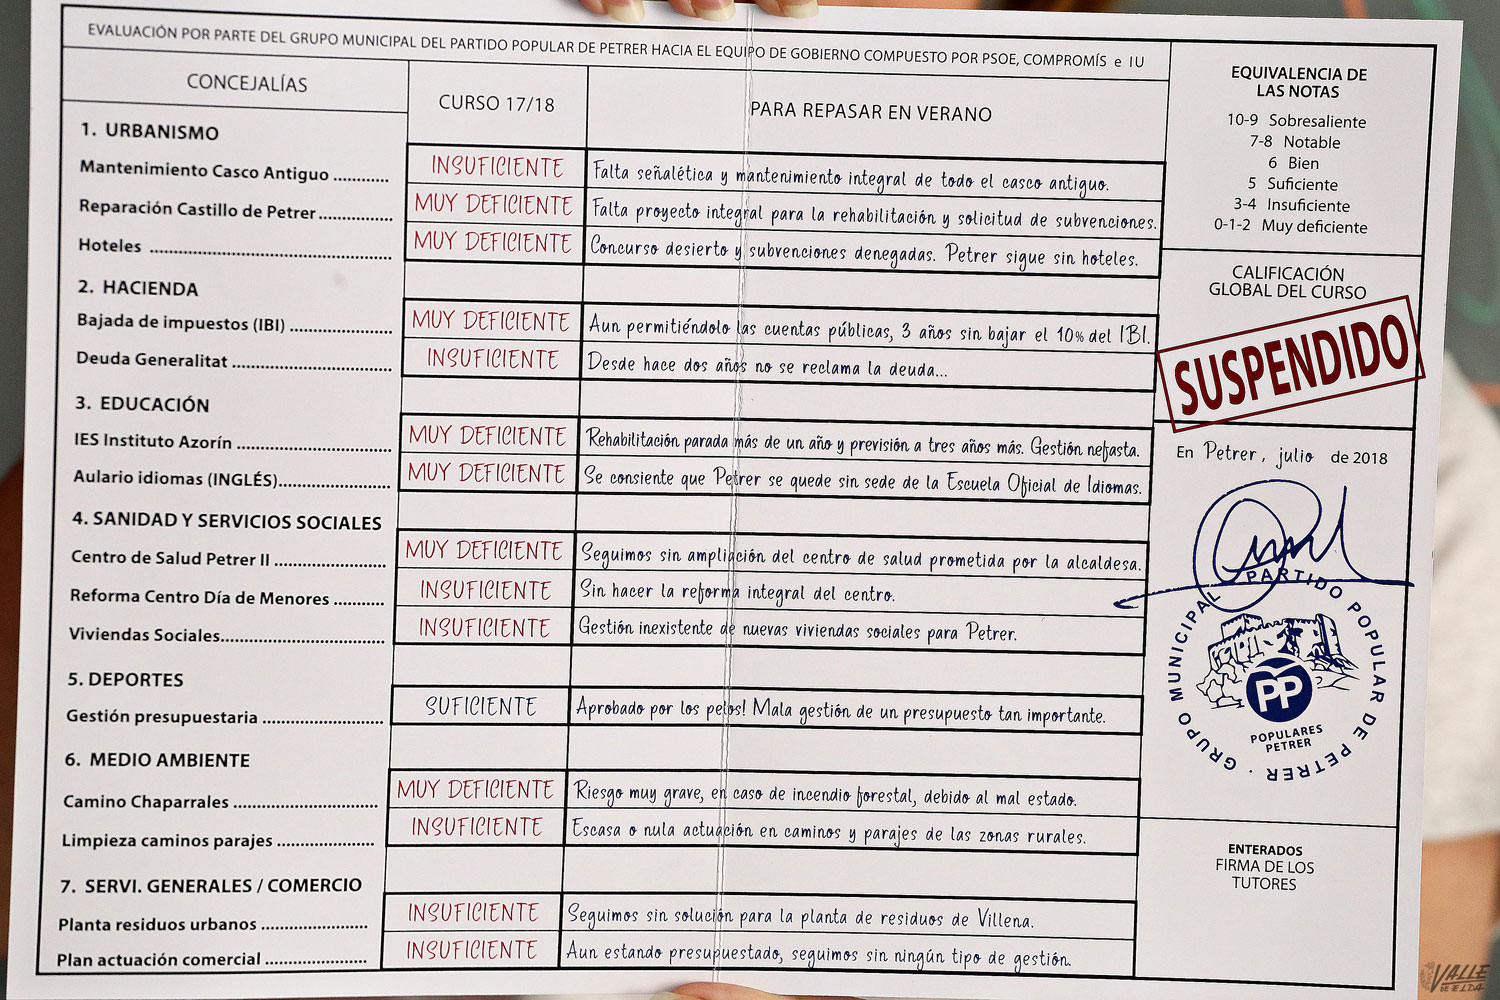 EVALUACIÓN POR PARTE DEL GRUPO MUNICIPAL DEL PARTIDO POPULAR DE PETRER HACIA EL EQUIPO DE GOBIERNO COMPUESTO POR PSOE, COMPROMÍS e IU
CONCEJALÍAS
CURSO 17/18
PARA REPASAR EN VERANO
1. URBANISMO
Mantenimiento Casco Antiguo ........... INSUFICIENTE Falta señalética y mantenimiento integral de todo el casco antiguo.
Reparación Castillo de Petrer .............. MUY DEFICIENTE Falta proyecto integral para la rehabilitación y solicitud de subvenciones.
Hoteles ..................................................... MUY DEFICIENTE Concurso desierto y subvenciones denegadas. Petrer sigue sin hoteles.
2. HACIENDA
Bajada de impuestos (IBI) .................... MUY DEFICIENTE Aun permitiéndolo las cuentas públicas, 3 años sin bajar el 10% del IBI.
Deuda Generalitat ................................ INSUFICIENTE Desde hace dos años no se reclama la deuda...
3. EDUCACIÓN
IES Instituto Azorín ............................... MUY DEFICIENTE Rehabilitación parada más de un año y previsión a tres años más. Gestión nefasta.
Aulario idiomas (INGLÉS)...................... MUY DEFICIENTE Se consiente que Petrer se quede sin sede de la Escuela Oficial de Idiomas.
4. SANIDAD Y SERVICIOS SOCIALES
Centro de Salud Petrer II ...................... MUY DEFICIENTE Seguimos sin ampliación del centro de salud prometida por la alcaldesa.
Reforma Centro Día de Menores ........... INSUFICIENTE Sin hacer la reforma integral del centro.
Viviendas Sociales................................. INSUFICIENTE Gestión inexistente de nuevas viviendas sociales para Petrer.
5. DEPORTES
Gestión presupuestaria ........................ SUFICIENTE Aprobado por los pelos! Mala gestión de un presupuesto tan importante.
6. MEDIO AMBIENTE
Camino Chaparrales ............................. MUY DEFICIENTE Riesgo muy grave, en caso de incendio forestal, debido al mal estado.
Limpieza caminos parajes ................... INSUFICIENTE Escasa o nula actuación en caminos y parajes de las zonas rurales.
7. SERVI. GENERALES / COMERCIO
Planta residuos urbanos ...................... INSUFICIENTE Seguimos sin solución para la planta de residuos de Villena.
Plan actuación comercial ..................... INSUFICIENTE Aun estando presupuestado, seguimos sin ningún tipo de gestión.
EQUIVALENCIA DE
LAS NOTAS
10-9 Sobresaliente
7-8 Notable
6 Bien
5 Suficiente
3-4 Insuficiente
0-1-2 Muy deficiente
CALIFICACIÓN
GLOBAL DEL CURSO
SUSPENDIDO
En Petrer, julio de 2018
GRUPO MUNICIPAL PARTIDO POPULAR DE PETRER
PP
POPULARES
PETRER
ENTERADOS
FIRMA DE LOS
TUTORES
VALLE
DE ELDA